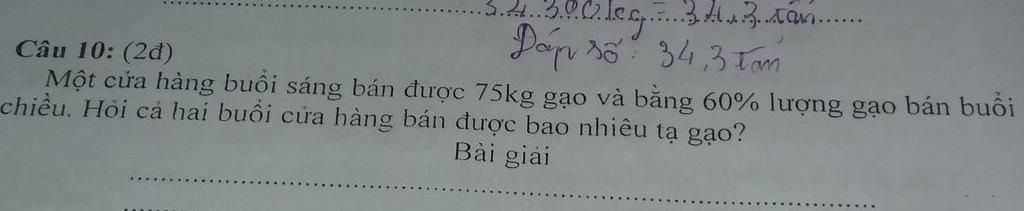 34.300kg = 34,3 tấn
Đáp số: 34,3 tấn
Câu 10: (2đ)
Một cửa hàng buổi sáng bán được 75kg gạo và bằng 60% lượng gạo bán buổi
chiều. Hỏi cả hai buổi cửa hàng bán được bao nhiêu tạ gạo?
Bài giải